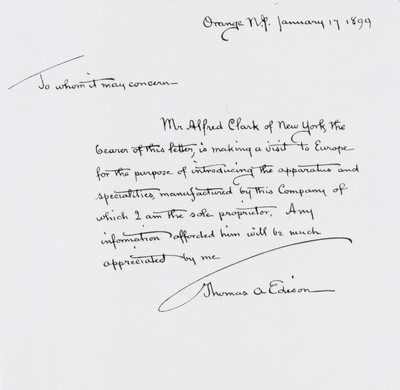 Orange N.J. January 17 1899
To whom it may concern
Mr. Alfred Clark of New York, the
bearer of this letter, is making a visit to Europe
for the purpose of introducing the apparatus and
specialities, manufactured by this Company of
which I am the sole proprietor. Any
information afforded him will be much
appreciated by me
Thomas A Edison